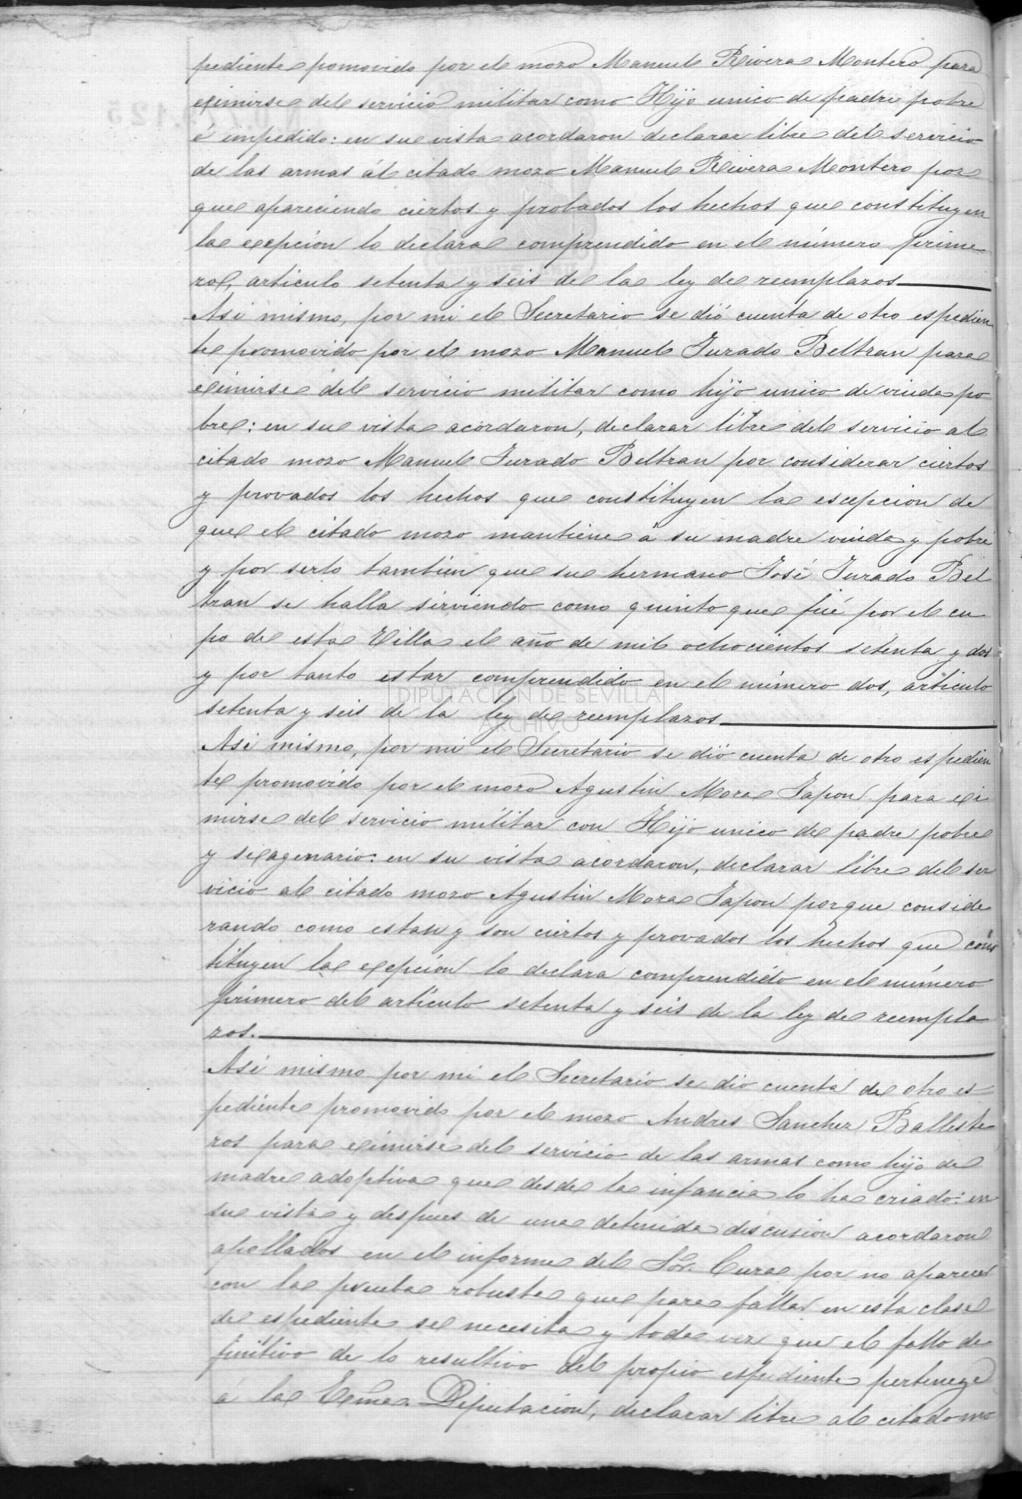 pediente pomovido por el mozo Manuel Rivera Montero para
eximirse del servicio militar como Hijo unico de padre pobre
é impedido: en su vista acordaron declarar libre del servicio
de las armas ál citado mozo Manuel Rivera Montero por
que apareciendo ciertos y probados los hechos que constituyen
la excpción lo declara comprendido en el número prime
ro, articulo setenta y seis de la ley de reemplazos
Asi mismo, por mi el Secretario se dió cuenta de otro espedien
te promovido por el mozo Manuel Jurado Beltran para
eximirse del servicio militar como hijo unico de viuda po
bre: en su vista acordaron, declarar libre del servicio al
citado mozo Manuel Jurado Beltran por considerar ciertos
y provados los hechos que constituyen la escepcion de
que el citado mozo mantiene á su madre viuda y pobre
y por serlo tambien que su hermano José Jurado Bel
tran se halla sirviendo como quinto que fué por el cu
po de esta Villa el año de mil ochocientos setenta y dos
y por tanto estar comprendido en el número dos, articulo
setenta y seis de la ley de reemplazos
DIPUTACION DE SEVILLA
ARCHIVO
Asi mismo, por mi el Secretario se dió cuenta de otro espedien
te promovido por el mozo Agustin Mora Japon para exi
mirse del servicio militar con Hijo unico de padre pobre
y sexagenario: en su vista acordaron, declarar libre del ser
vicio al citado mozo Agustin Mora Japon porque conside
rando como estan y son ciertos y provados los hechos que cons
tituyen la excpción lo declara comprendido en el número
primero del articulo setenta y seis de la ley de reempla
zos.
Asi mismo por mi el Secretario se dio cuenta de otro es
pediente promovido por el mozo Andres Sanchez Balleste
ros para eximirse del servicio de las armas como hijo de
madre adoptiva que desde la infancia lo ha criado: en
su vista y despues de una detenida discusion acordaron
apollados en el informe del Sor. Cura por no aparecer
con la prueba robusta que para fallar en esta clase
de espediente se necesita y toda vez que el fallo de
finitivo de lo resultivo del propio espediente pertenege
á la Exma. Diputacion, declarar libre al citado mo